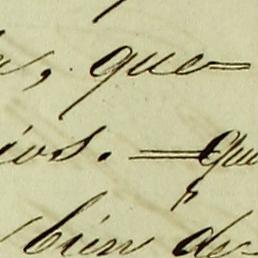 que
ios. — que
bien de